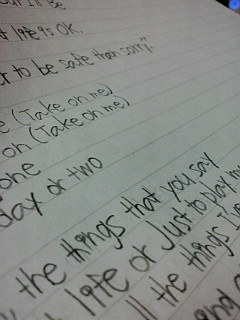 I'll be
t life is OK.
r to be safe than sorry"
e (Take on me)
on (Take on me)
one
day or two
the things that you say
life or Just to play m
ll the things I've
and